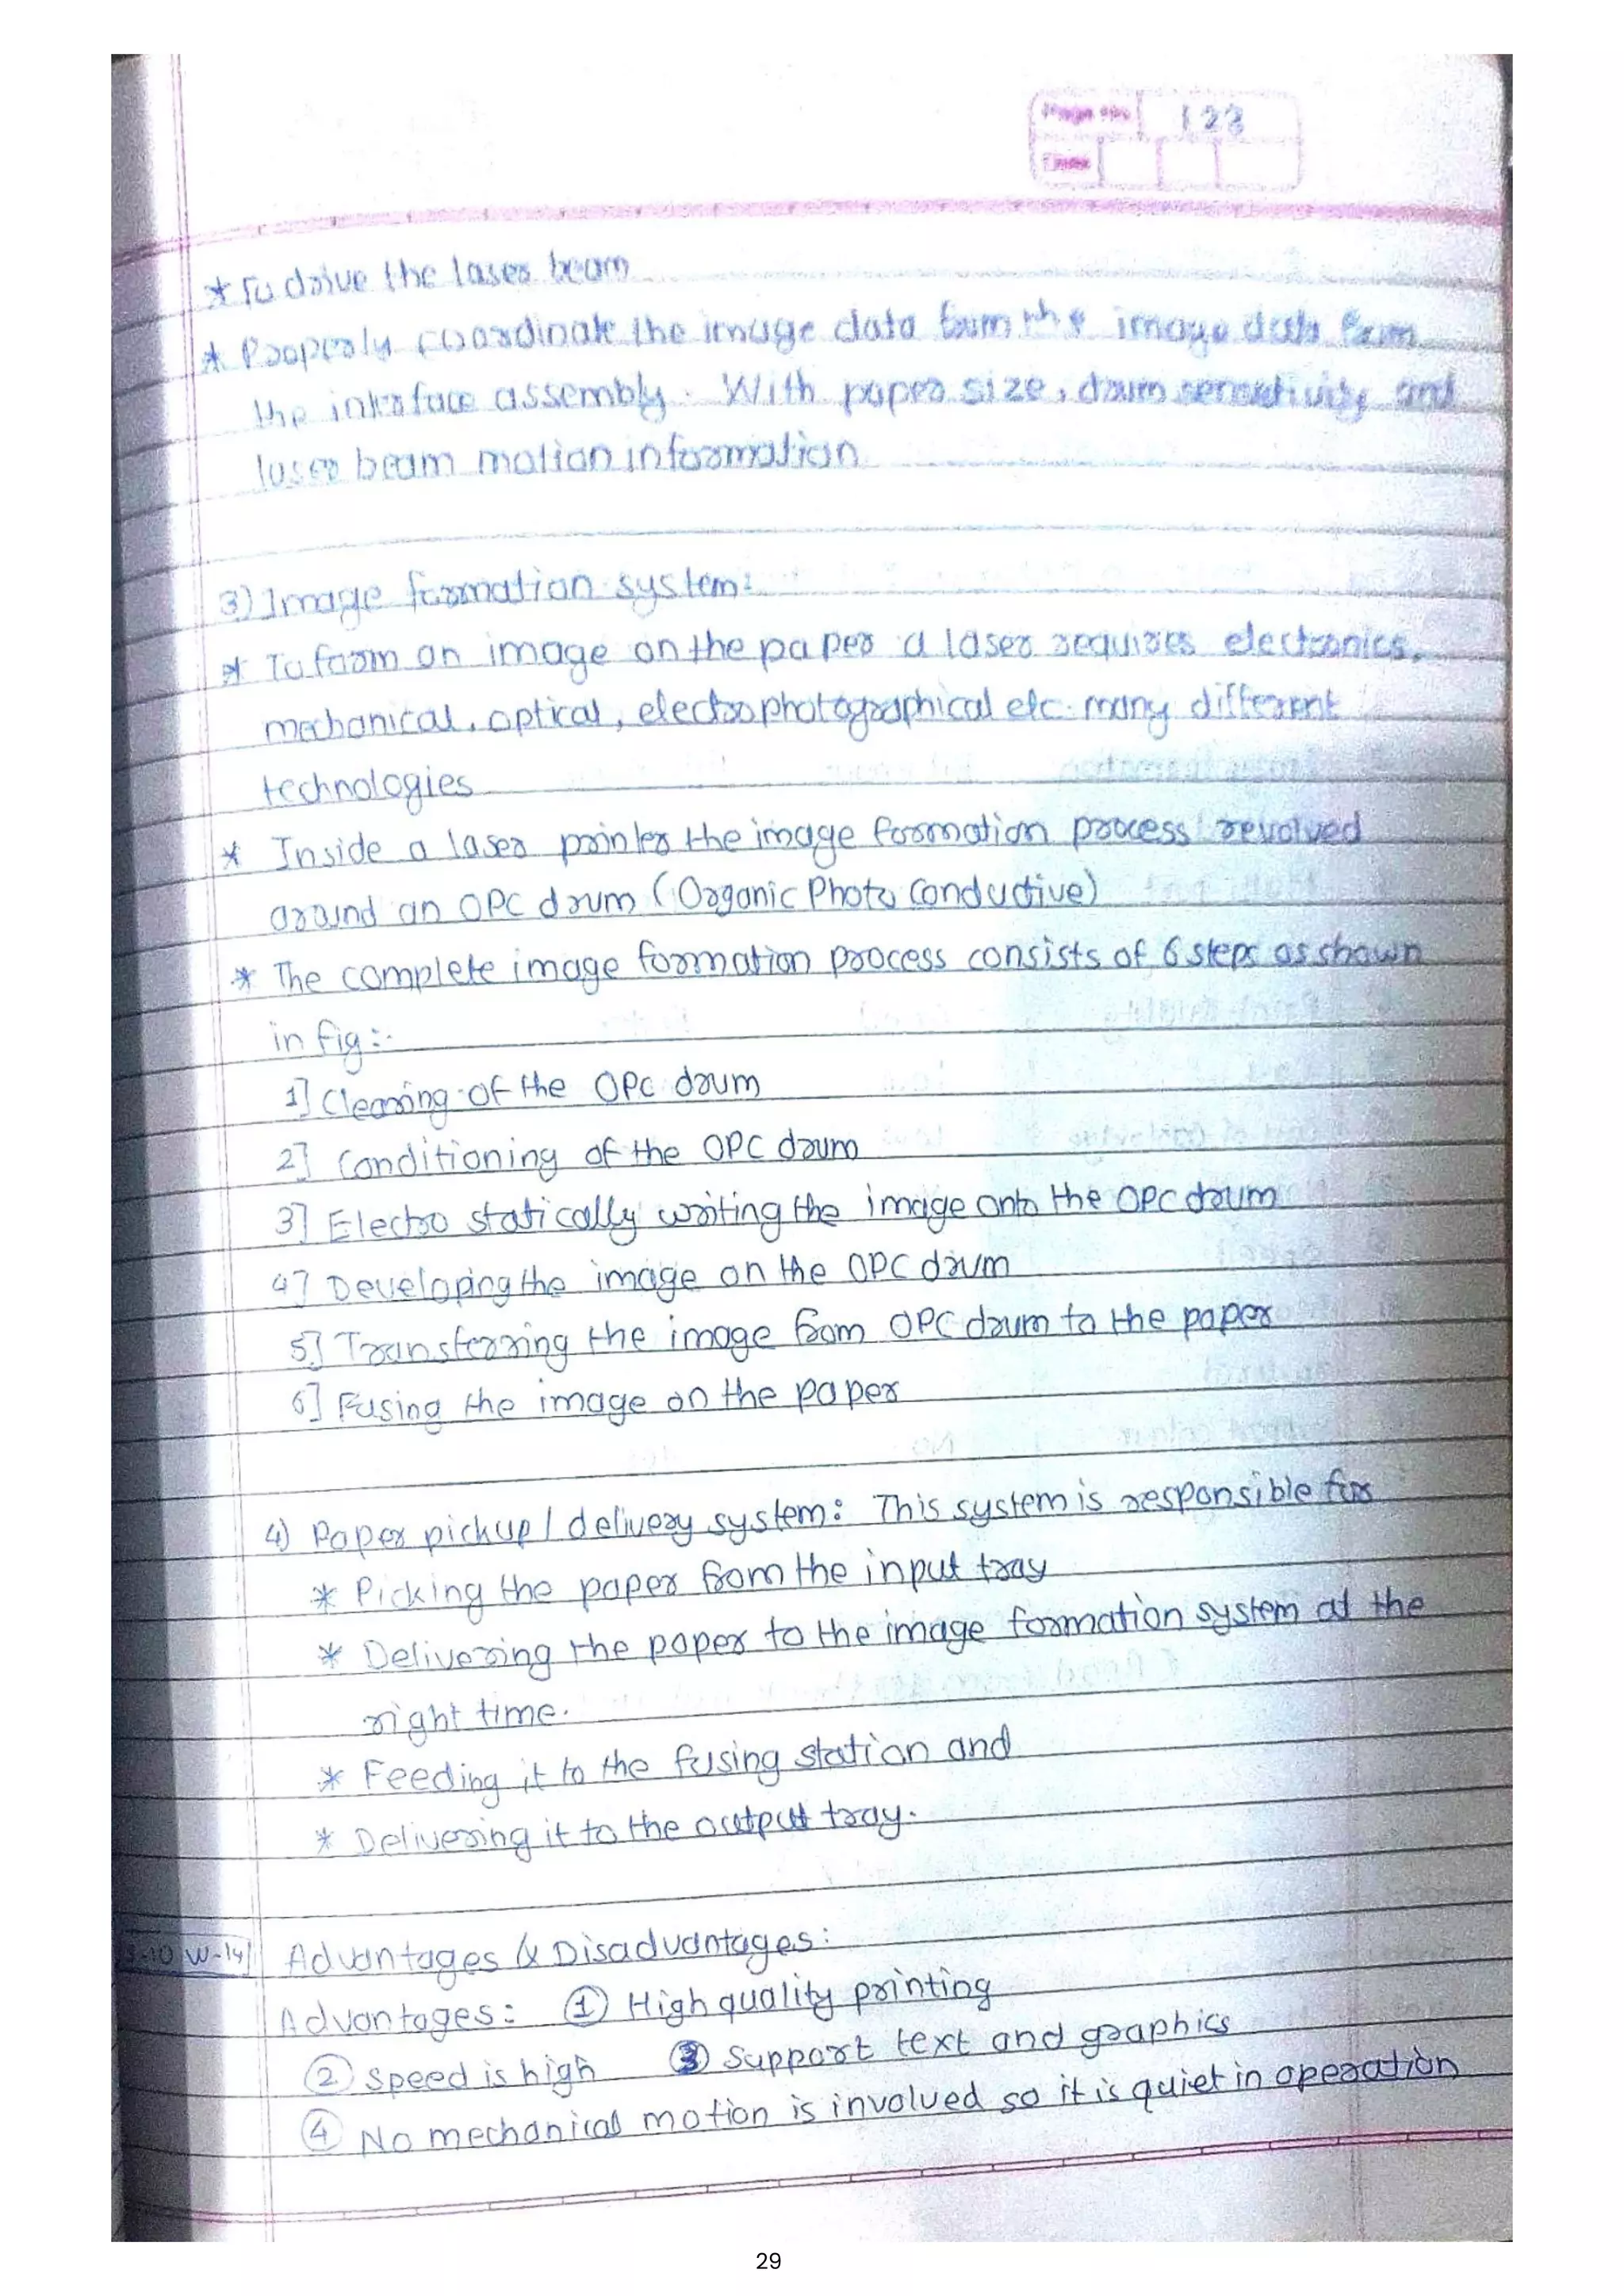 Page No. 123
Date
* To drive the laser beam
* Properly coordinate the image data from the image data from
the interface assembly. With paper size, drum sensitivity and
laser beam motion information
3) Image formation system:
* To form an image on the paper a laser requires electronics,
mechanical, optical, electrophotographical etc. many different
technologies
* Inside a laser printer the image formation process revolved
around an OPC drum (Organic Photo Conductive)
* The complete image formation process consists of 6 steps as shown
in fig:-
1] Clearing of the OPC drum
2] Conditioning of the OPC drum
3] Electro statically writing the image onto the OPC drum
4] Developing the image on the OPC drum
5] Transferring the image from OPC drum to the paper
6] Fusing the image on the paper
4) Paper pickup / delivery system: This system is responsible for
* Picking the paper from the input tray
* Delivering the paper to the image formation system at the
right time.
* Feeding it to the fusing station and
* Delivering it to the output tray.
W-14 Advantages & Disadvantages:
Advantages: ① High quality printing
② Speed is high ③ Support text and graphics
④ No mechanical motion is involved so it is quiet in operation
29